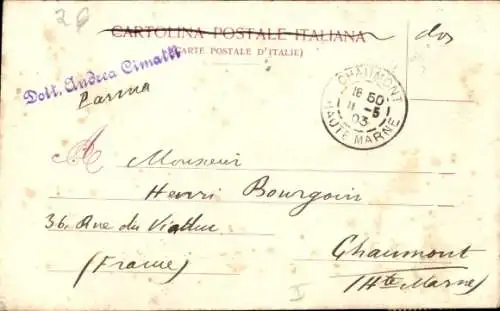 26
CARTOLINA POSTALE ITALIANA
dos
(CARTE POSTALE D'ITALIE)
Dott. Andrea Cimatti
Parma
CHAUMONT
18 50
11 -5
03
HAUTE MARNE
A Monsieur
Henri Bourgoin
36, Rue du Viaduc
(France)
Chaumont
(Hte Marne)